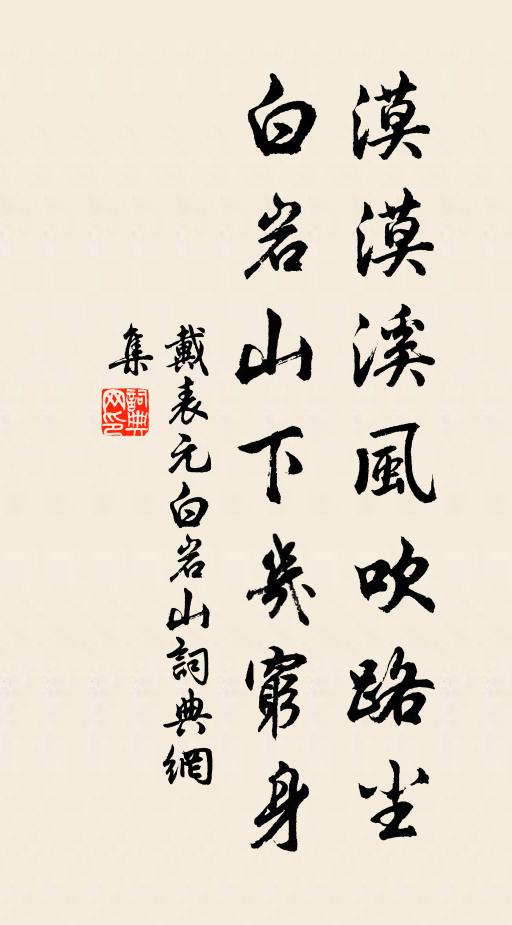 漠漠溪風吹路尘
白岩山下幾窮身
戴表元白岩山詞典網
集
詞典网印